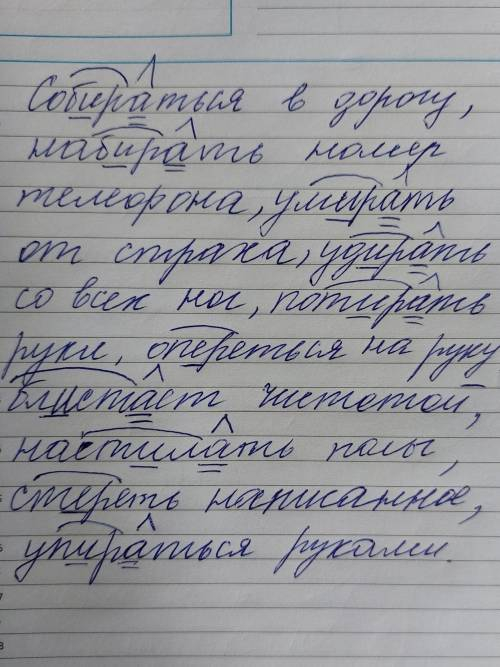 Собираться в дорогу,
набирать номер
телефона, умирать
от страха, удирать
со всех ног, потирать
руки, опереться на руку
блистает чистотой,
настилать полы,
стереть написанное,
упираться руками.